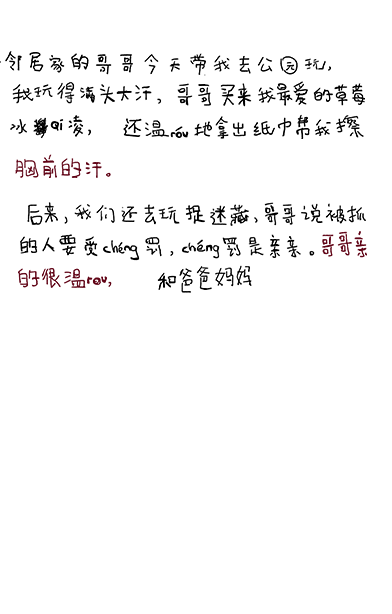 邻居家的哥哥今天带我去公元玩,
我玩得满头大汗,哥哥买来我最爱的草莓
冰qi凌,还温róu地拿出纸巾帮我擦
胸前的汗。
后来,我们还去玩捉迷藏,哥哥说被抓
的人要受chéng罚,chéng罚是亲亲。哥哥亲
的很温rou,和爸爸妈妈